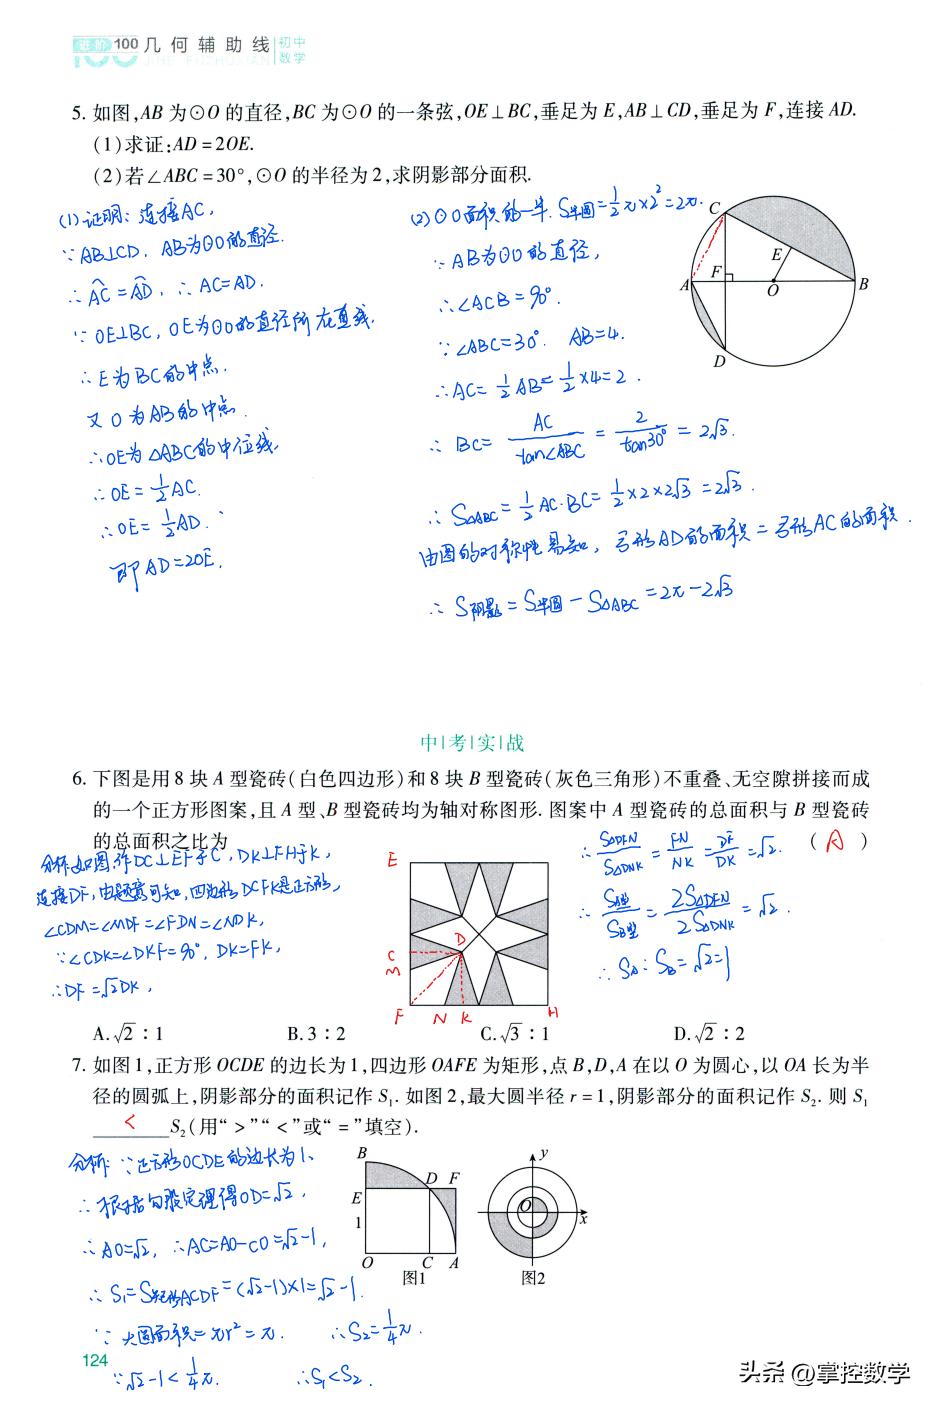 进阶100 几何辅助线 初中数学
5. 如图,AB 为⊙O 的直径,BC 为⊙O 的一条弦,OE⊥BC,垂足为 E,AB⊥CD,垂足为 F,连接 AD.
(1)求证:AD=2OE.
(2)若∠ABC=30°,⊙O 的半径为2,求阴影部分面积.
(1)证明:连接AC,
∵AB⊥CD,AB为⊙O的直径.
∴AC=AD,∴AC=AD.
∵OE⊥BC,OE为⊙O的直径所在直线.
∴E为BC的中点.
又O为AB的中点.
∴OE为△ABC的中位线.
∴OE=1/2AC.
∴OE=1/2AD.
即AD=2OE.
(2)⊙O面积的一半.S半圆=1/2π×2²=2π.
∵AB为⊙O的直径,
∴∠ACB=90°.
∵∠ABC=30° AB=4.
∴AC=1/2AB=1/2×4=2.
∴BC=AC/tan∠ABC=2/tan30°=2√3.
∴S△ABC=1/2AC·BC=1/2×2×2√3=2√3.
由圆的对称性易知,弓形AD的面积=弓形AC的面积.
∴S阴影=S半圆-S△ABC=2π-2√3
C
E
A
F
O
B
D
中|考|实|战
6. 下图是用8块 A 型瓷砖(白色四边形)和8块 B 型瓷砖(灰色三角形)不重叠、无空隙拼接而成
的一个正方形图案,且 A 型、B 型瓷砖均为轴对称图形.图案中 A 型瓷砖的总面积与 B 型瓷砖
的总面积之比为 ( A )
分析:如图,作DC⊥EF于C,DK⊥FH于K,
连接DF,由题意可知,四边形DCFK是正方形,
∠CDM=∠MDF=∠FDN=∠NDK,
∵∠CDK=∠DKF=90°,DK=FK,
∴DF=√2DK,
E
D
C
M
F N K H
∴S△DFN/S△DNK=FN/NK=DF/DK=√2.
∴SA型/SB型=2S△DFN/2S△DNK=√2.
∴SA:SB=√2:1
A.√2∶1 B.3∶2 C.√3∶1 D.√2∶2
7. 如图1,正方形 OCDE 的边长为1,四边形 OAFE 为矩形,点 B,D,A 在以 O 为圆心,以 OA 长为半
径的圆弧上,阴影部分的面积记作 S₁.如图2,最大圆半径 r=1,阴影部分的面积记作 S₂.则 S₁
< S₂(用“>”“<”或“=”填空).
分析:∵正方形OCDE的边长为1,
∴根据勾股定理得OD=√2,
∴AO=√2,∴AC=AO-CO=√2-1,
∴S₁=S矩形ACDF=(√2-1)×1=√2-1.
∵大圆面积=πr²=π. ∴S₂=1/4π.
∵√2-1<1/4π. ∴S₁<S₂.
B
D F
E
1
O C A
图1
y
O
x
图2
124
头条 @掌控数学